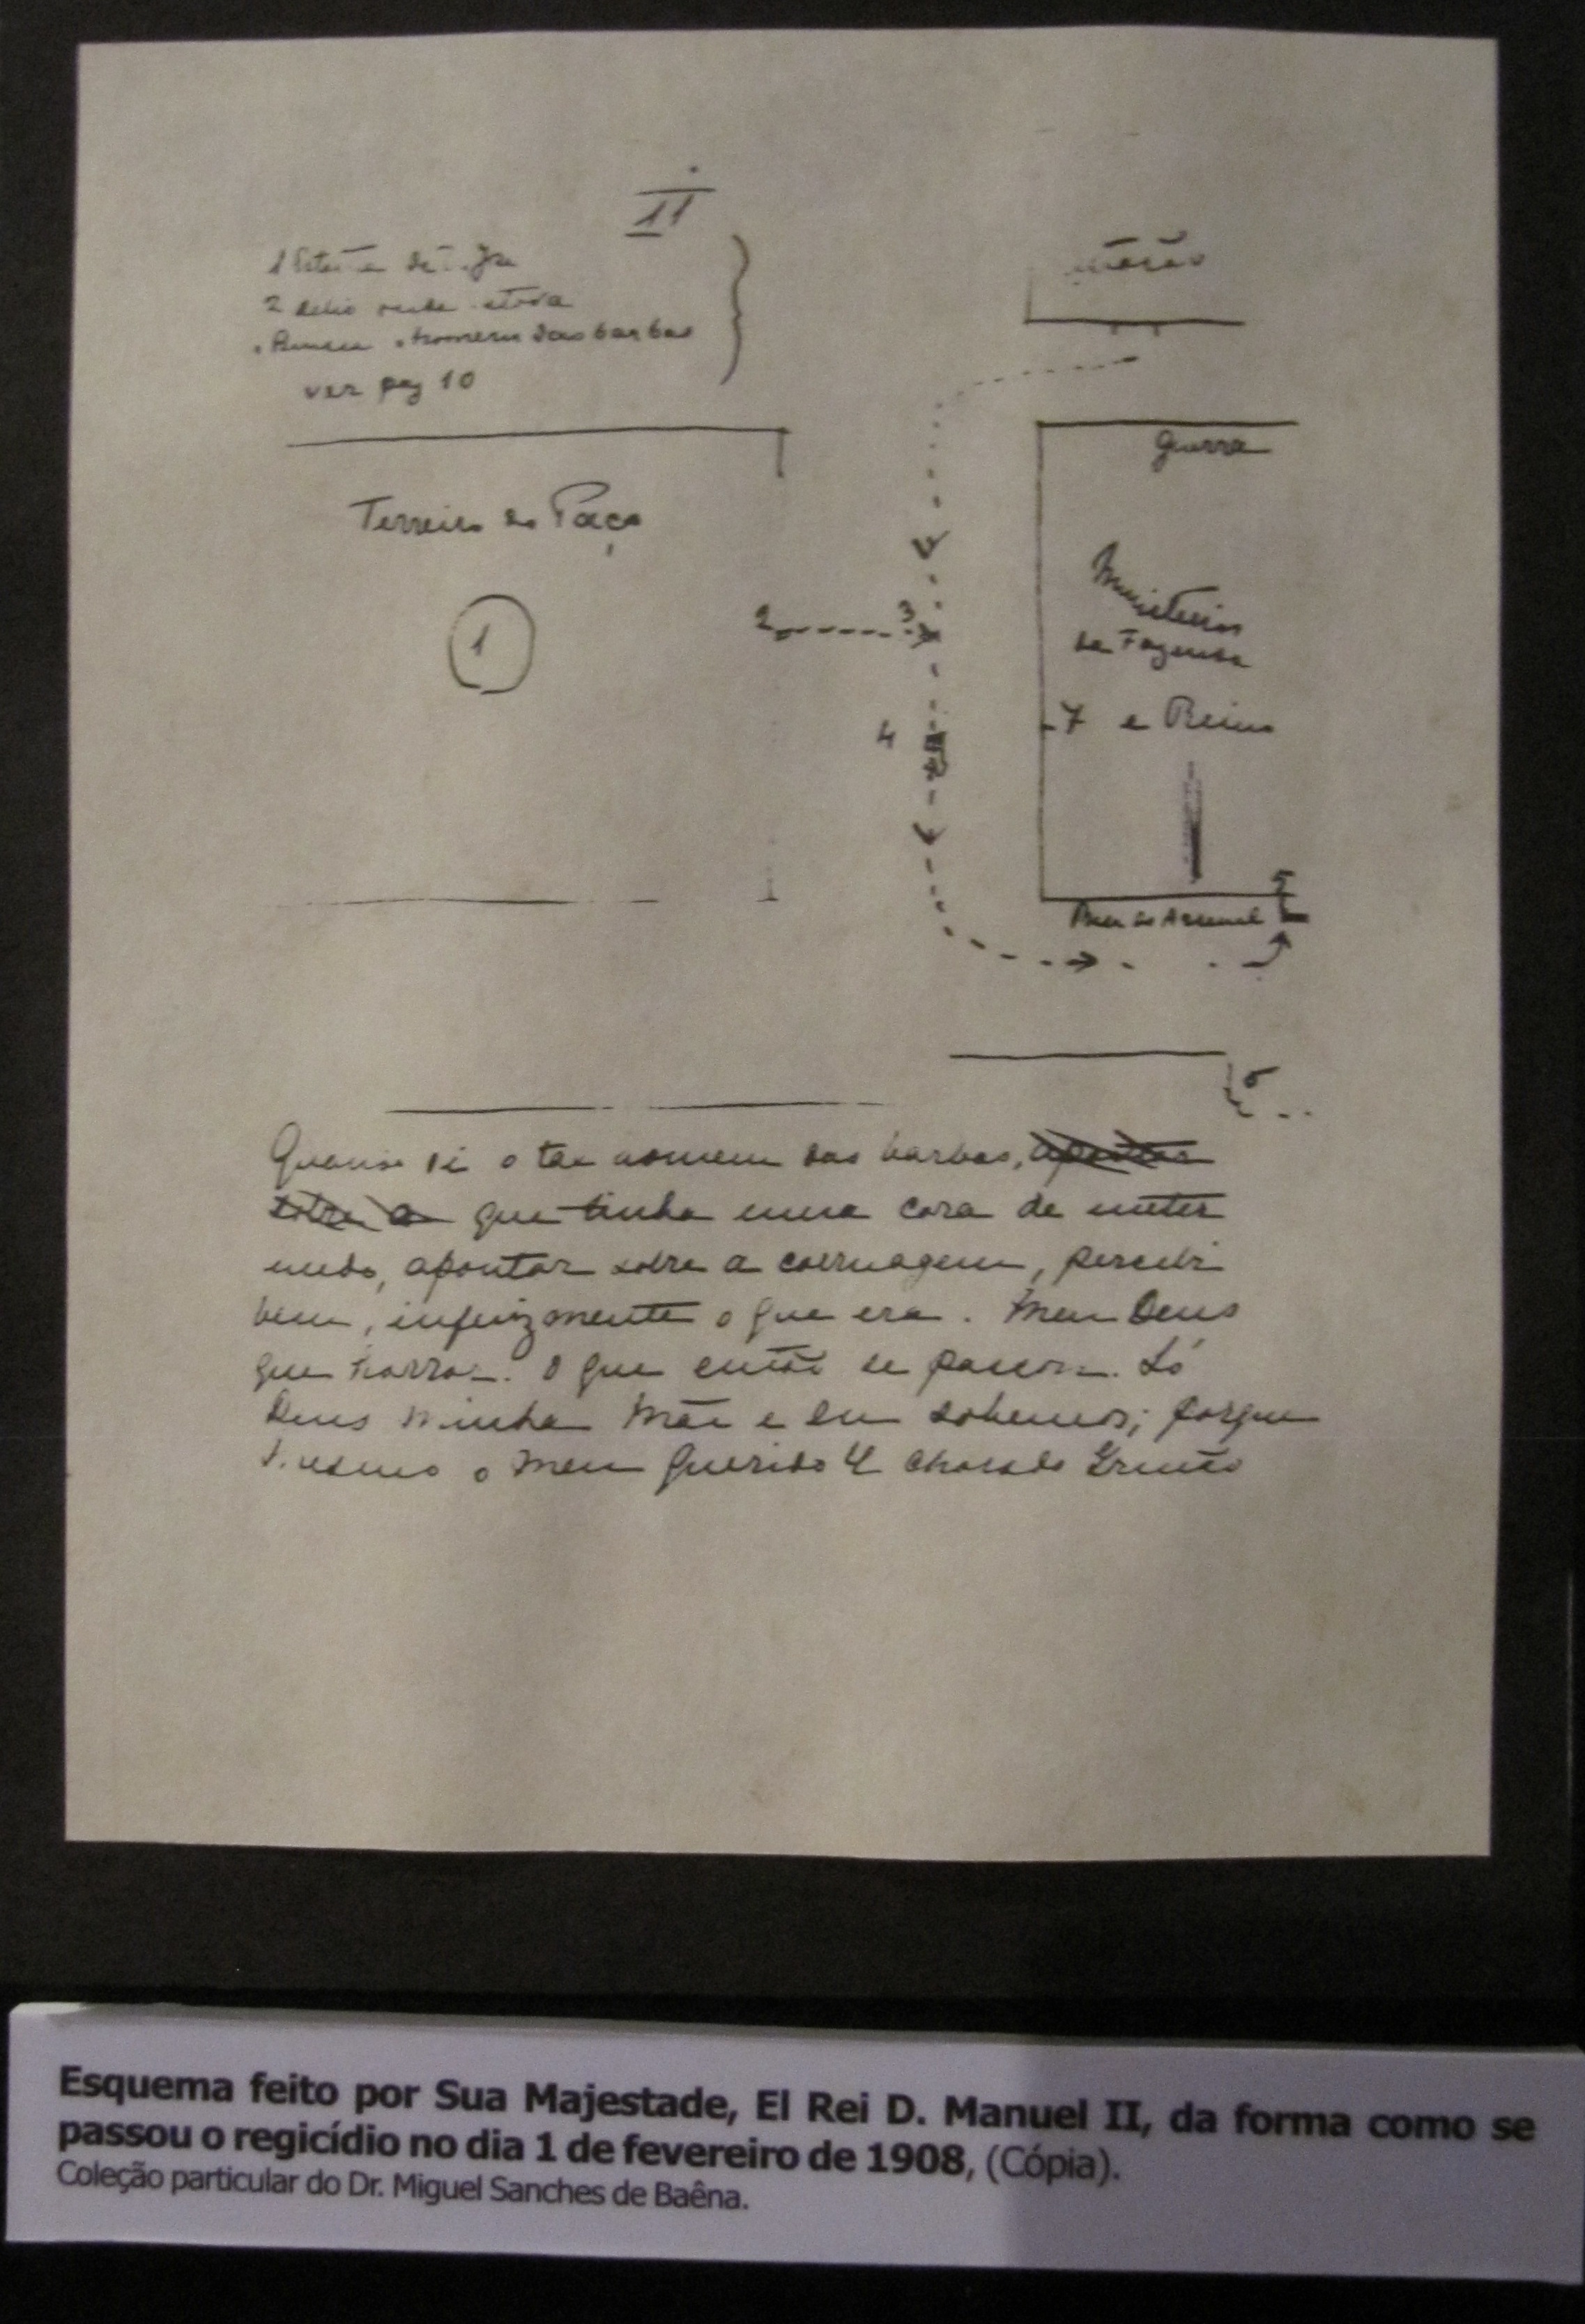 11
1
2 sitio onde estava
homem das barbas
ver pag 10
estação
Guerra
Terreiro do Paço
Ministerio
da Fazenda
1
2
3
4
7 e Reino
5
Rua do Arsenal
6
Quando vi o tal homem das barbas, apontar
sobre a que tinha uma cara de meter
medo, apontar sobre a carruagem, percebi
bem, infelizmente o que era. Meu Deus
que horror. O que então se passou. Só
Deus minha Mãe e eu sabemos; porque
mesmo o meu querido e chorado Irmão
Esquema feito por Sua Majestade, El Rei D. Manuel II, da forma como se
passou o regicídio no dia 1 de fevereiro de 1908, (Cópia).
Coleção particular do Dr. Miguel Sanches de Baêna.